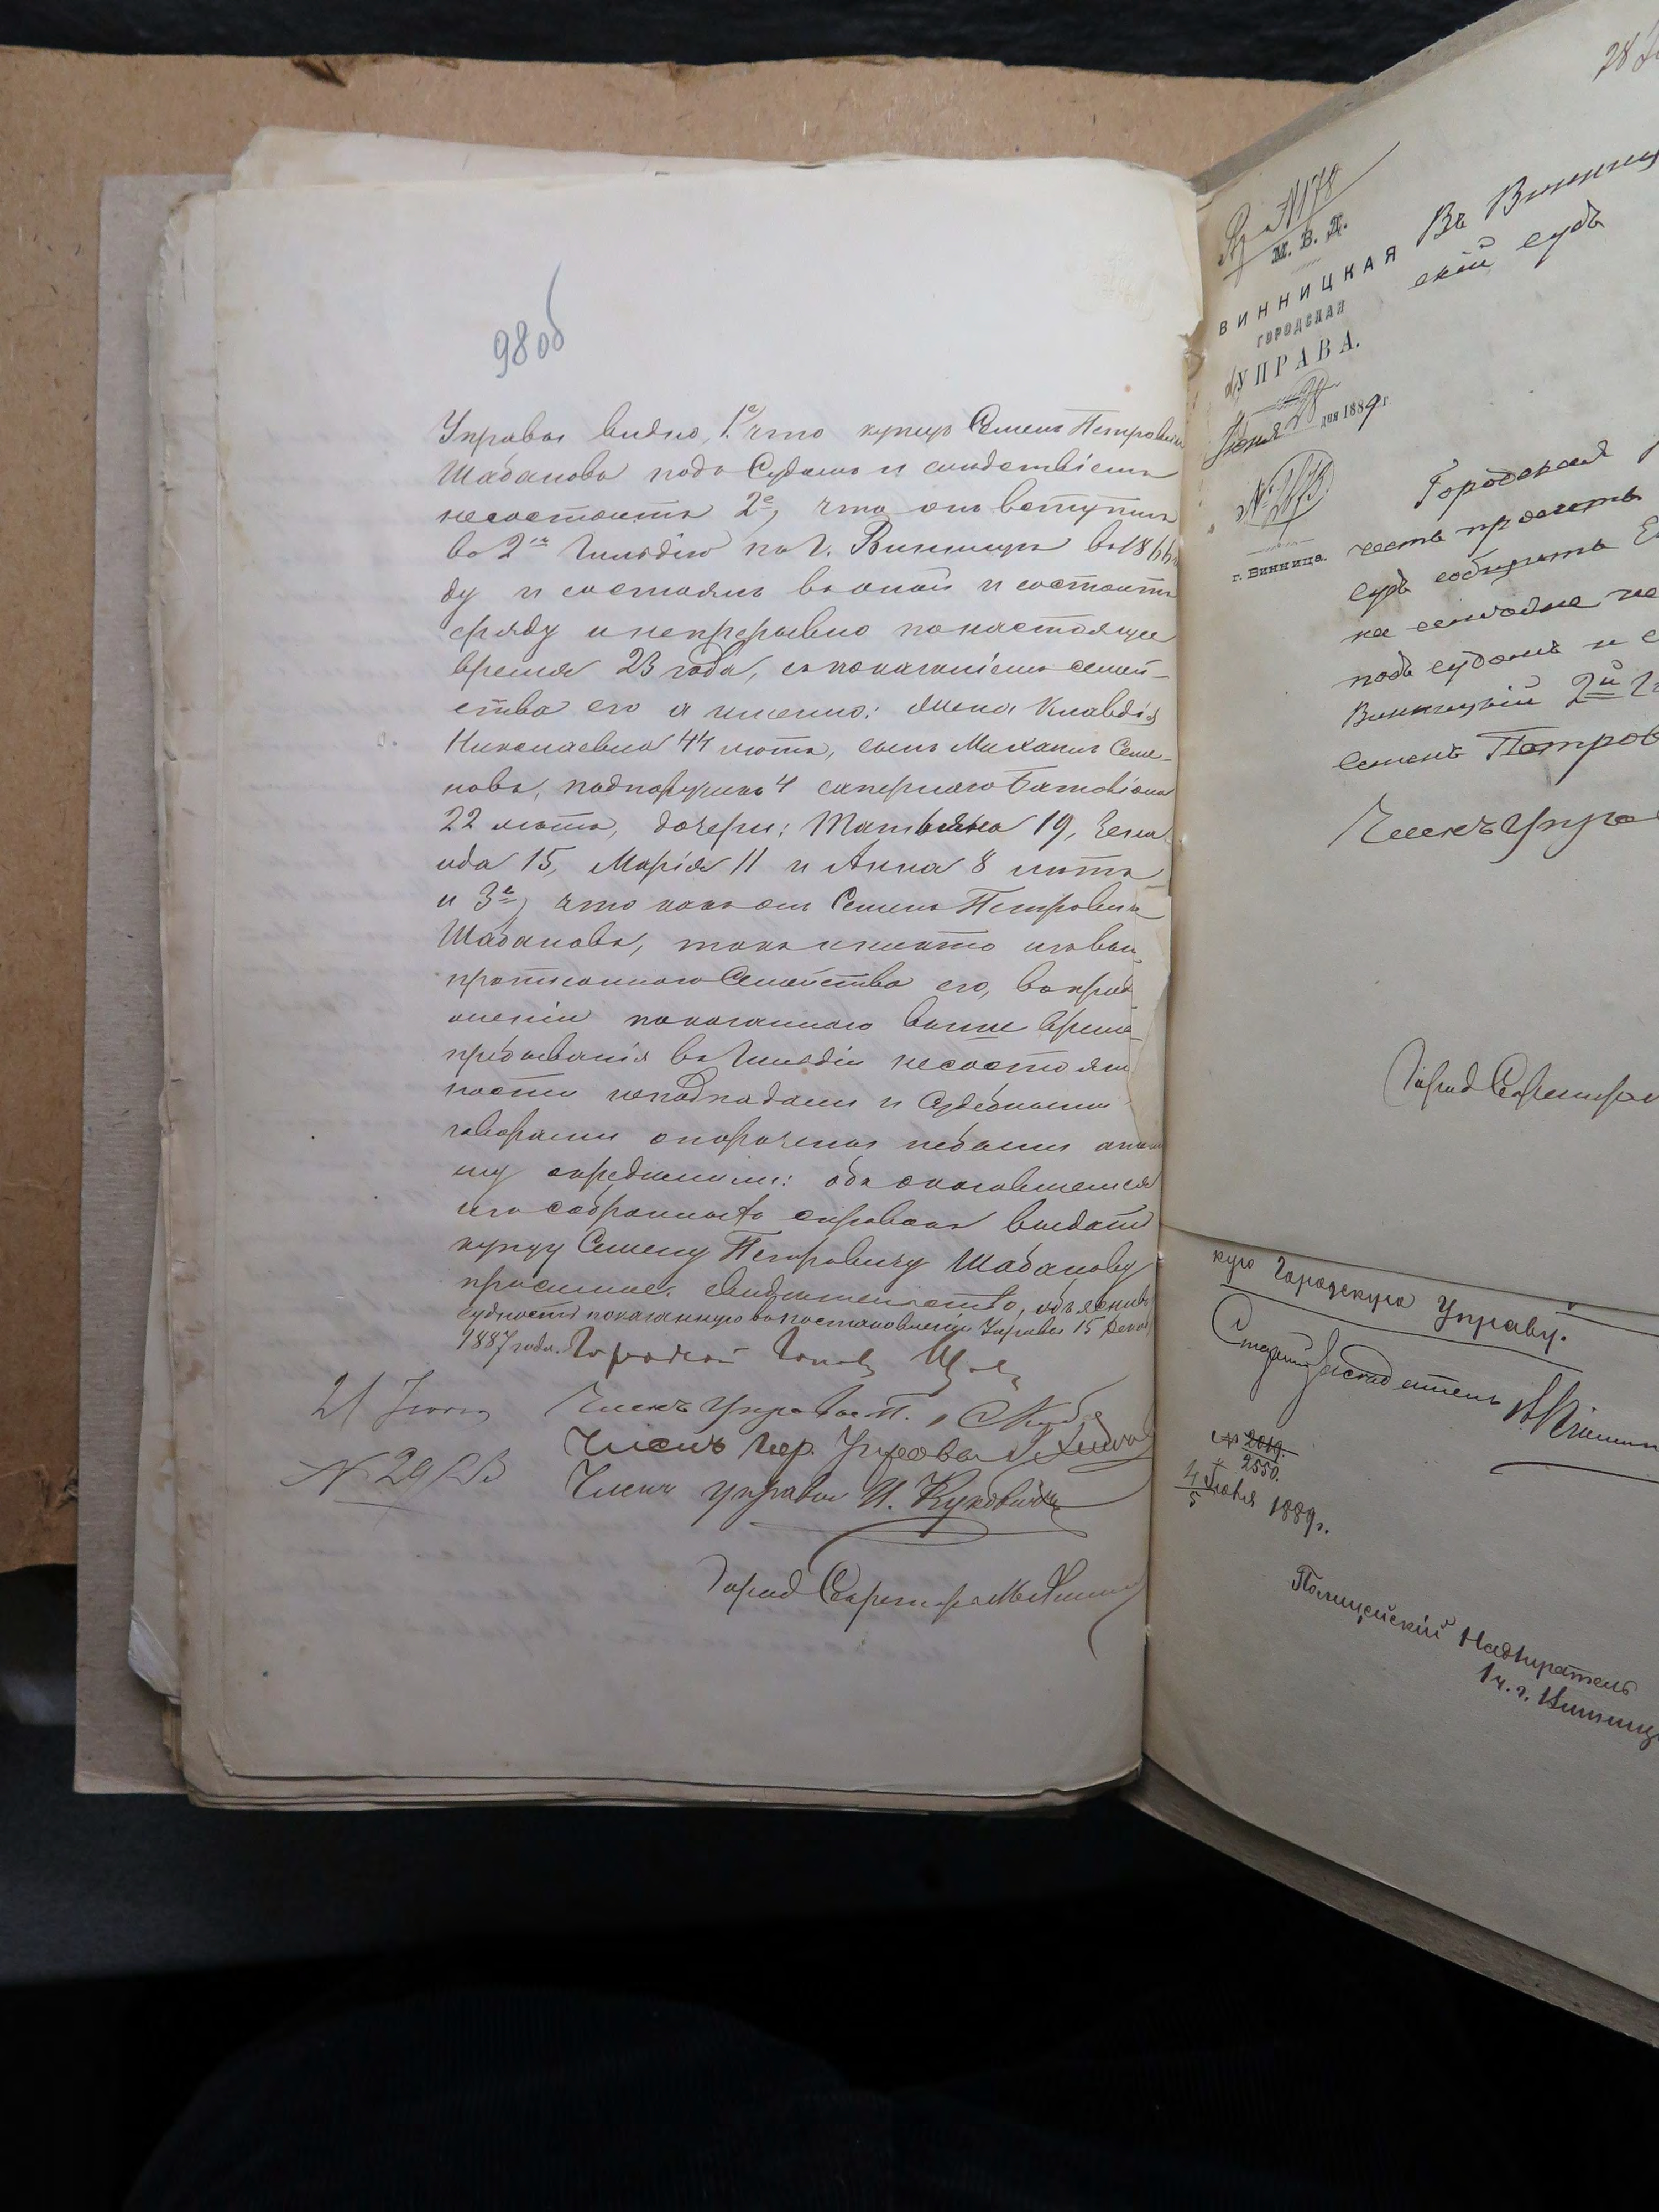 98 об
Управы видно, 1е что купец Семенъ Петровичъ
Шабановъ подъ Судомъ и следствіемъ
несостоитъ 2е, что онъ вступилъ
во 2ю Гильдію по г. Винницѣ въ 1866 го
ду и состоялъ в оной и состоитъ
сряду и непрерывно по настоящее
время 23 года, съ показаніемъ семей-
ства его а именно: жена Клавдія
Николаевна 44 лѣтъ, сынъ Михаилъ Семе-
новъ, подпоручикъ 4 сапернаго Баталіона
22 лѣтъ, дочери: Татьяна 19, Зена
ида 15, Марія 11 и Анна 8 лѣтъ
и 3е, что какъ онъ Семенъ Петровичъ
Шабановъ, такъ и никто изъ вы-
прописаннаго Семейства его, въ прод
олженіи показаннаго выше време-
пребыванія въ Гильдіи несостоятель
ности неподпадали и Судебными
говорами опорочены небыли а по
му опредѣлили: объ оказавшемся
изъ собранныхъ справокъ выдать
купцу Семену Петровичу Шабанову
просимое свидѣтельство, объяснивъ
судность показанную въ постановленіи Управы 15 Декаб
1887 года. Городской Голова
21 Іюня Членъ Управы
№ 2983 Членъ Гор. Управы
Членъ управы И. Куковичъ
Город Секретарь
№ 178
М. В. Д.
ВИННИЦКАЯ
ГОРОДСКАЯ
УПРАВА.
Іюня 28 дня 1889 г.
№
г. Винница.
28
Въ Винниц
скій судъ
Городская
честь просить
судъ сообщить
ка семъ же не
подъ судомъ и с
Винницкій 2й
Семенъ Петров
Членъ Упра
Город Секретар
кую Городскую Управу.
Старшій Засѣдатель
№ 2019.
2550.
4 Іюля 1889 г.
5
Полицейскій Надзиратель
1 ч. г. Винниц